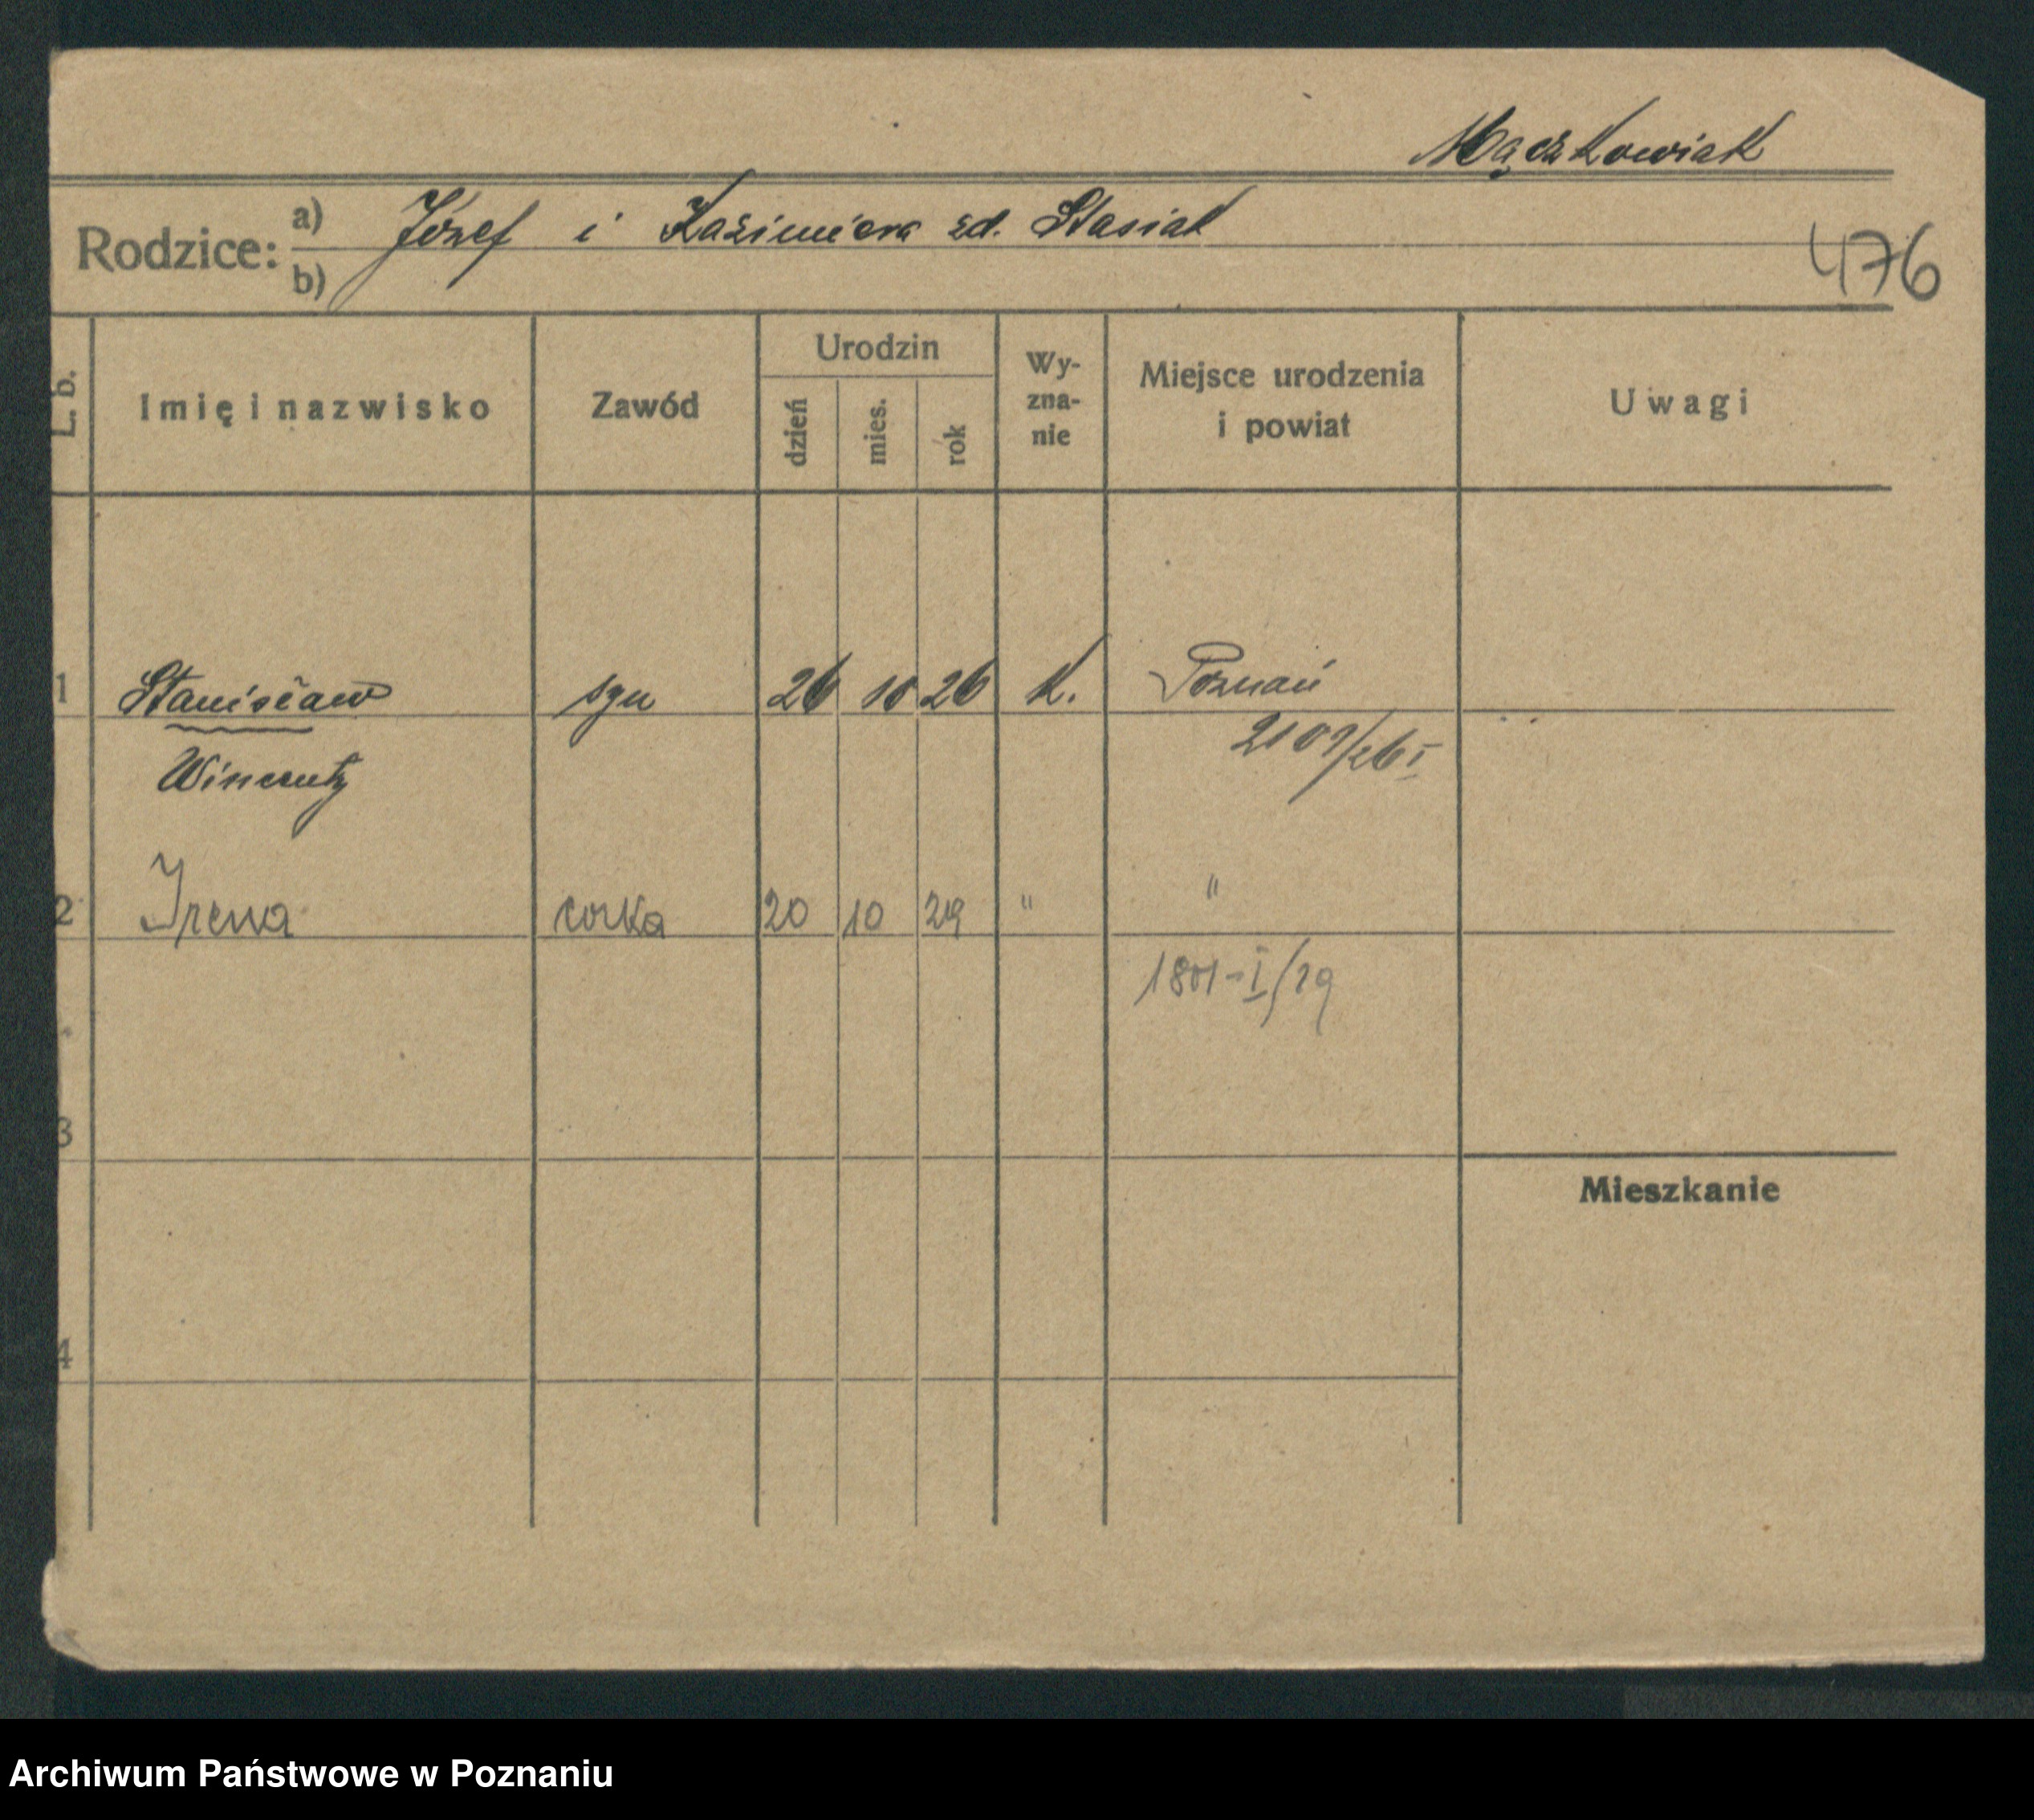 Mączkowiak
Rodzice: a) Józef i Kazimiera zd. Stasiak
b)
476
L. b. Imię i nazwisko Zawód Urodzin dzień mies. rok Wyznanie Miejsce urodzenia i powiat Uwagi
1 Stanisław syn 26 10 26 k. Poznań
2109/26 I
Wincenty
2 Irena corka 20 10 29 " "
1801-I/29
3
Mieszkanie
4
Archiwum Państwowe w Poznaniu